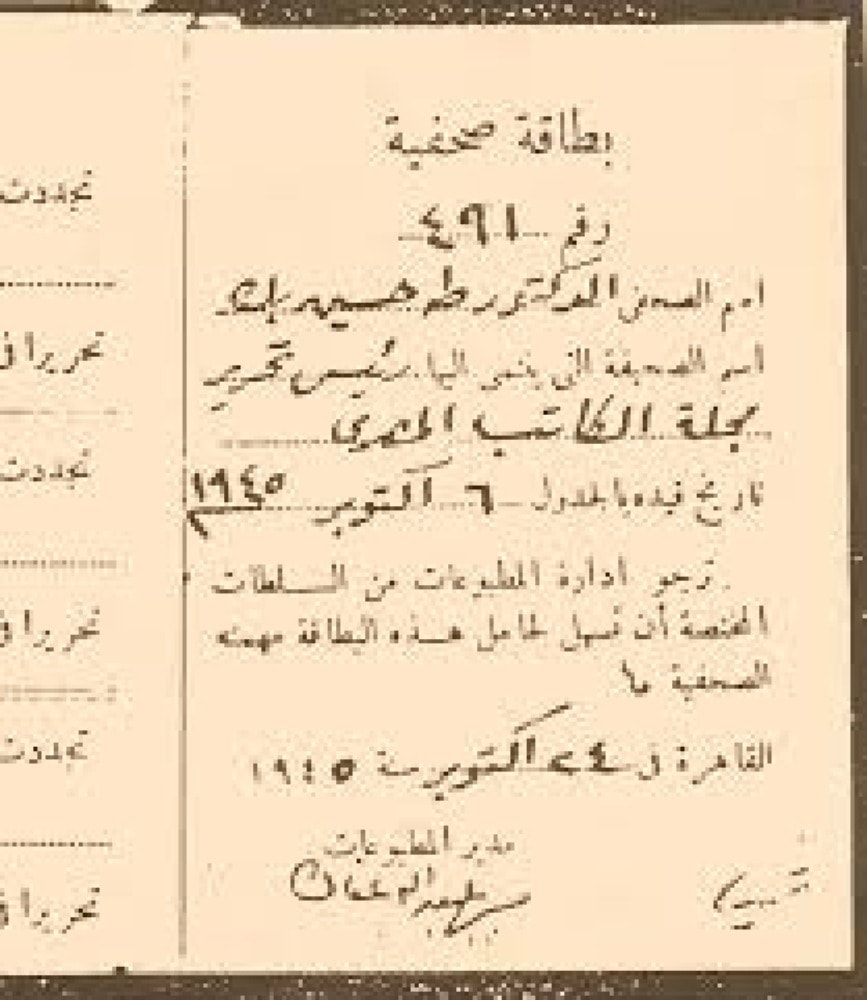 بطاقة صحفية
رقم ٤٩١
اسم الصحفى الدكتور طه حسين بك
اسم الصحيفة التى ينتمى اليها رئيس تحرير
مجلة الكاتب المصرى
تاريخ قيده بالجدول ٦ أكتوبر ١٩٤٥
ترجو ادارة المطبوعات من السلطات
المختصة أن تسهل لحامل هذه البطاقة مهمته
الصحفية
القاهرة فى ٢٤ أكتوبر سنة ١٩٤٥
مدير المطبوعات
تجددت
تحريرا فى
تجددت
تحريرا فى
تجددت
تحريرا فى